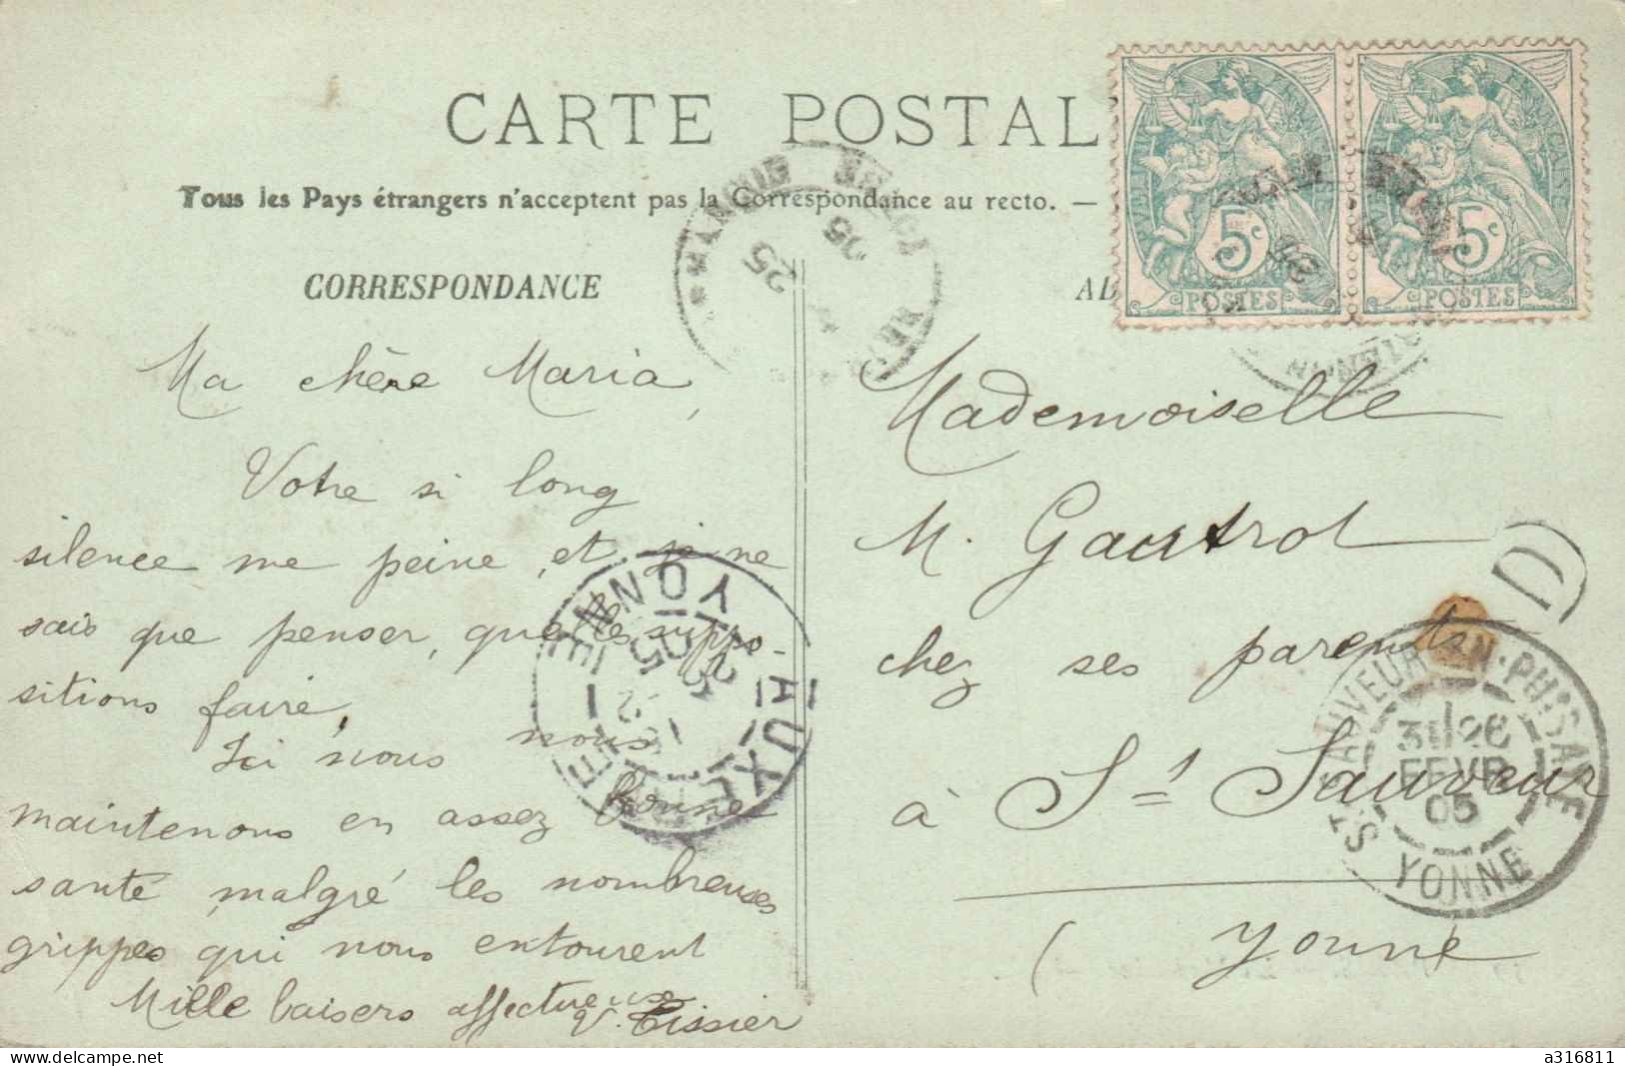 CARTE POSTAL
Tous les Pays étrangers n'acceptent pas la Correspondance au recto. —
CORRESPONDANCE
Ma chère Maria,
Votre si long
silence me peine, et je ne
sais que penser, quelles suppo-
sitions faire.
Ici nous nous
maintenons en assez bonne
santé malgré les nombreuses
grippes qui nous entourent
Mille baisers affectueux
V. Tissier
5c
POSTES
5c
POSTES
Mademoiselle
M. Gautrot
chez ses parents
à St Sauveur
( Yonne
D
ST SAUVEUR-EN-PUISAYE
31 26
FEVR
05
YONNE
AUXERRE
YONNE
05
a316811